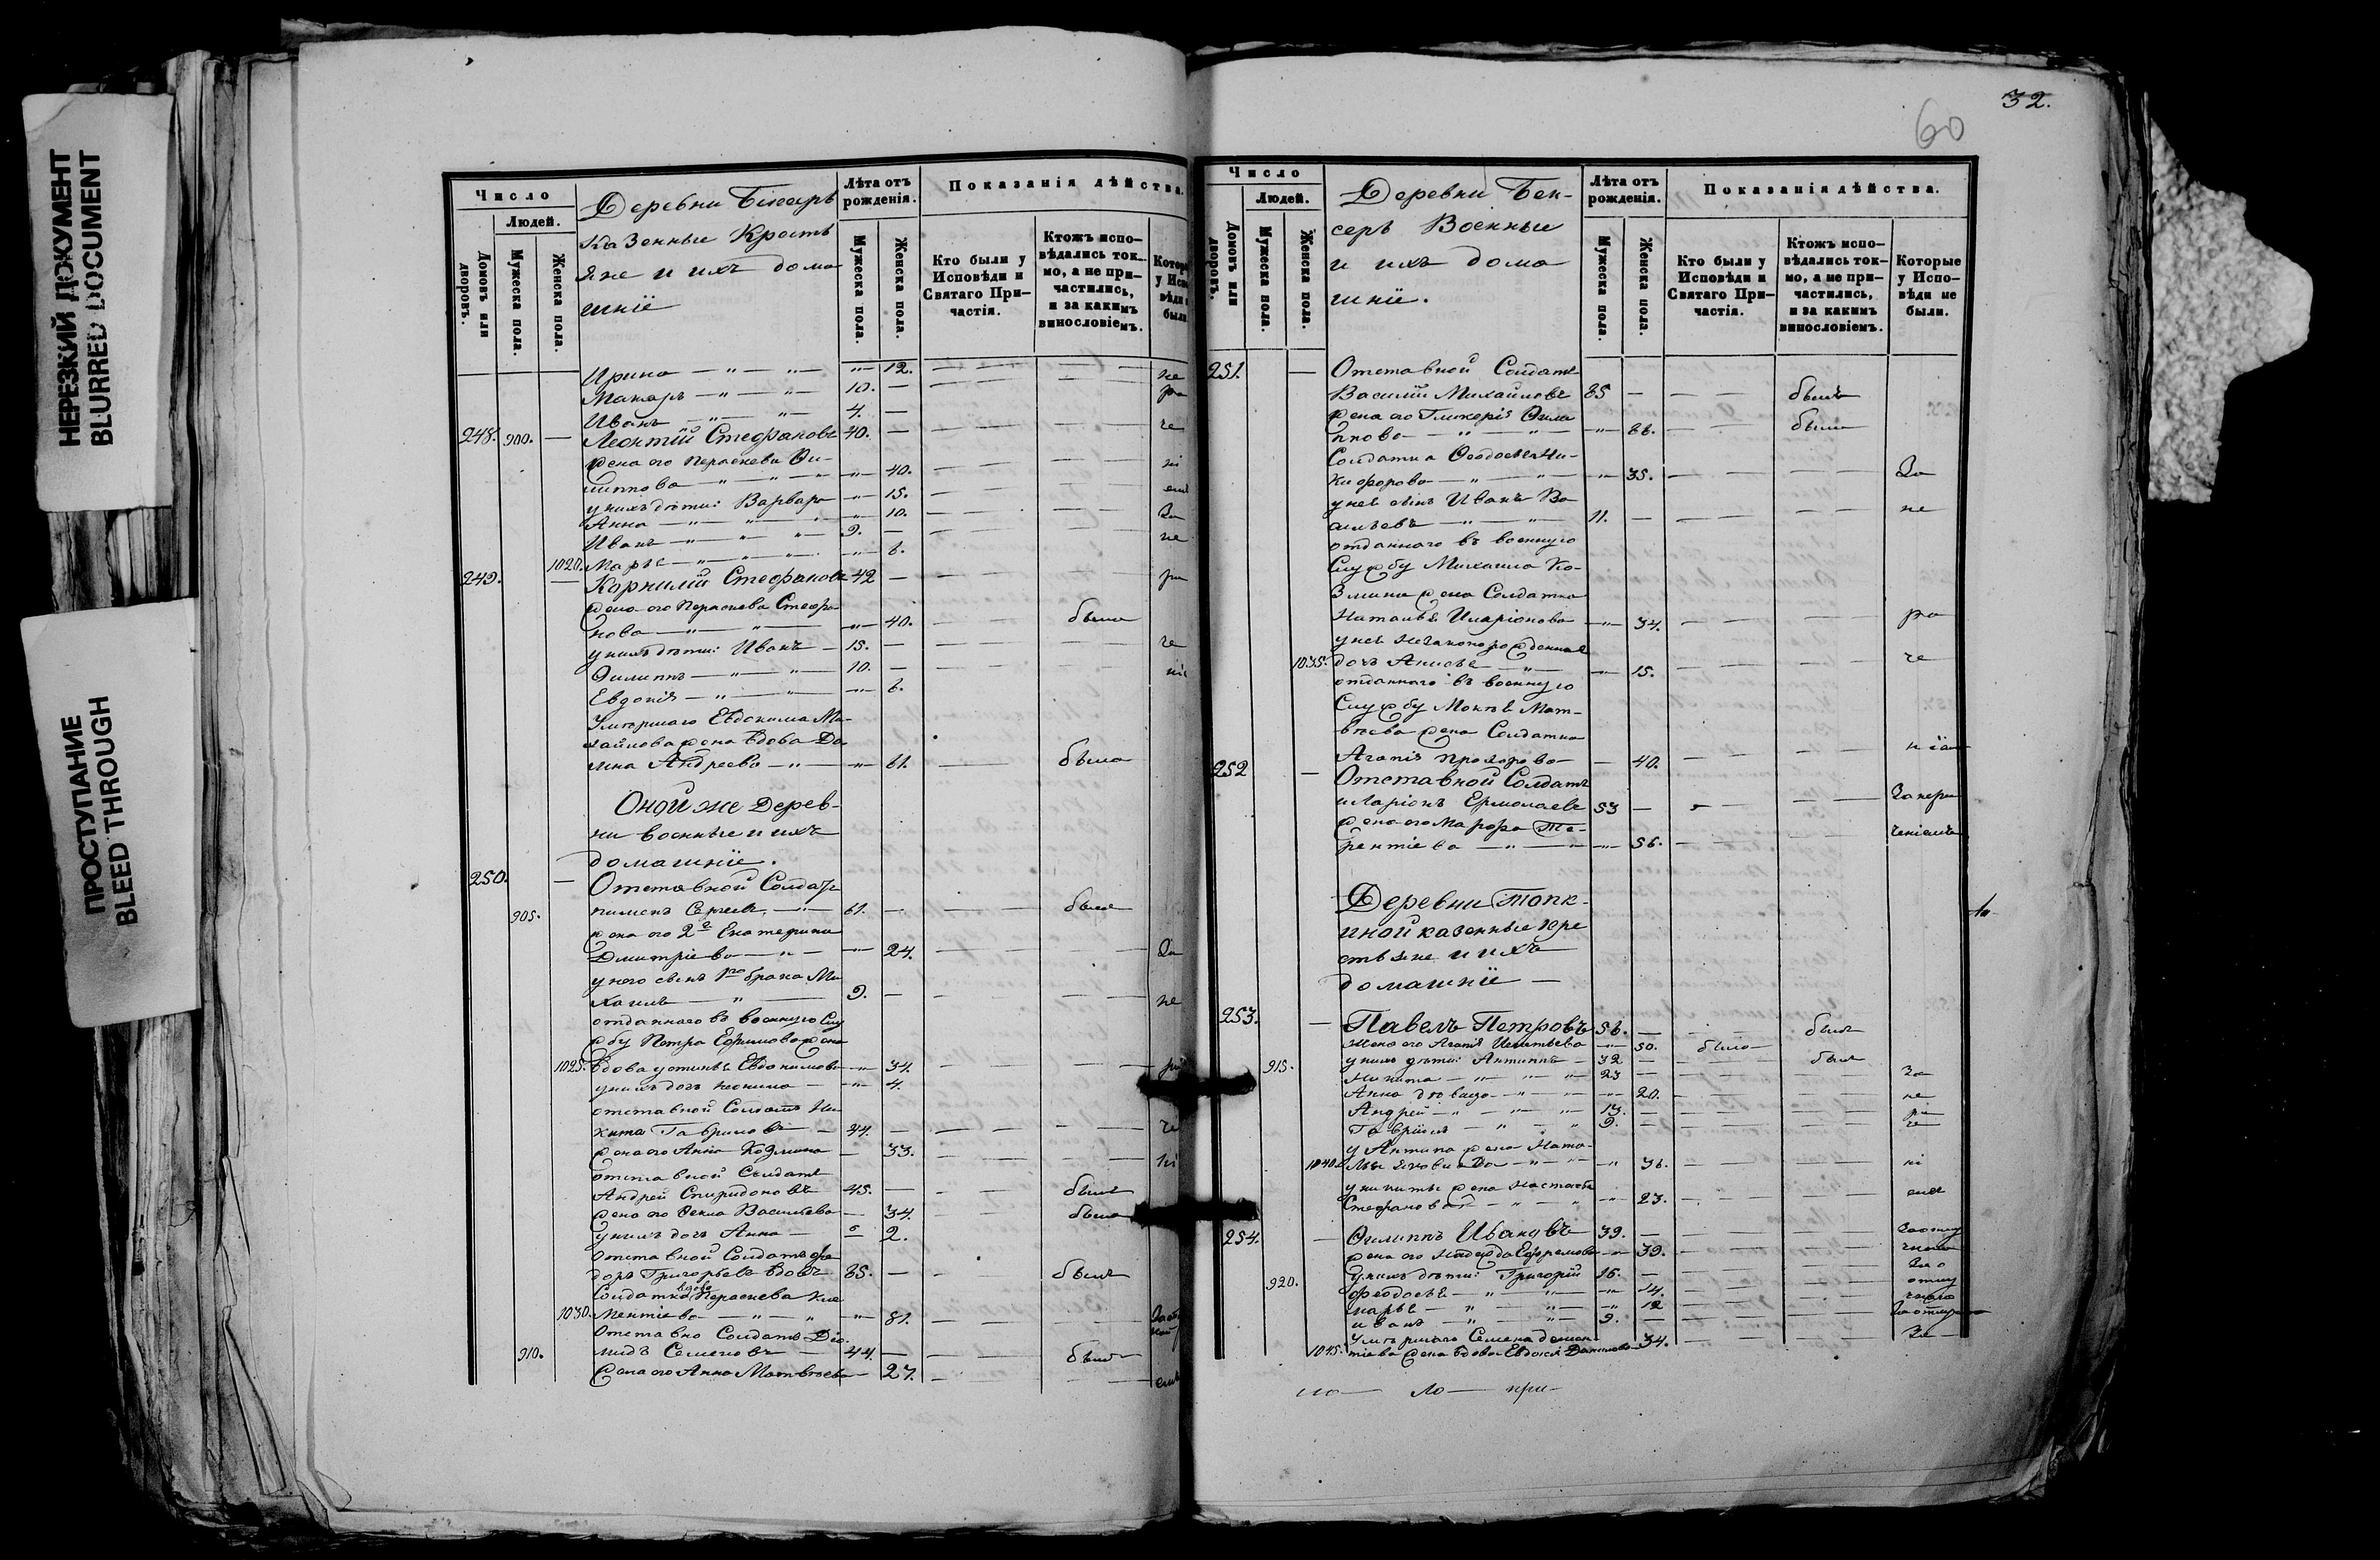 НЕРЕЗКИЙ ДОКУМЕНТ
BLURRED DOCUMENT
ПРОСТУПАНИЕ
BLEED THROUGH
Число
Людей.
Домовъ или дворовъ.
Мужеска пола.
Женска пола.
Деревни Бексеръ
казенные Крестъ
яне и ихъ дома
шніе
Лѣта отъ рожденія.
Мужеска пола.
Женска пола.
Показанія дѣйства.
Кто были у Исповѣди и Святаго Причастія.
Ктожъ исповѣдались токмо, а не причастились, и за какимъ винословіемъ.
Ирина — " — " — 12. не
Макаръ — " — " 10. — ра
Иванъ — " — " — 4. —
248. 900. — Леонтій Стефановъ 40. — че
жена его Параскева Фи-
липпова — " — " 40. ні
у нихъ дѣти: Варвара — " 15. емъ
Анна — " — " 10. За
Иванъ — " — " 9. — не
1020. Марья — " — " 6.
249. — Корнилій Стефановъ 42 — ра
жена его Параскева Стефа
нова — " — " 40. была
у нихъ дѣти: Иванъ — 15. — че
Филиппъ — " — " 10. — ні
Евдокія — " — " 6.
Умершаго Евдокима Ми-
хайлова жена вдова До
мна Андреева — " — " 61. была
Оной же Дерев-
ни военные и ихъ
домашніе.
250. — Отставной Солдатъ
905. пименъ Сергѣевъ — " — 61. — былъ
жена его 2я Екатерина
Дмитріева — " — " 24. За
у него сынъ 1го брака Ми
хаилъ — " — 9. — не
отданнаго въ военную Слу
жбу Петра Ефимова жена
1025. вдова устинья Евдокимова — " 34. ра
у нихъ дочь неонила — " 4.
отставной Солдатъ Ни
кита Гавриловъ — 44. — че
жена его Анна Козмина — 33. ні
отставной Солдатъ
Андрей Спиридоновъ 45. — былъ
жена его Фекла Васильева — 34. была
у нихъ дочь Анна — " 2.
отставной Солдатъ фе
доръ Григорьевъ вдовъ 85. — былъ
Солдатка вдова Параскева Кле
1030. ментіева — " — " 81.
Отставно Солдатъ Дio.
910. мидъ Семеновъ — 44. — былъ
жена его Анна Матвѣева — 27. емъ
32.
60
Число
Людей.
Домовъ или дворовъ.
Мужеска пола.
Женска пола.
Деревни Бек-
серъ Военные
и ихъ дома
шніе.
Лѣта отъ рожденія.
Мужеска пола.
Женска пола.
Показанія дѣйства.
Кто были у Исповѣди и Святаго Причастія.
Ктожъ исповѣдались токмо, а не причастились, и за какимъ винословіемъ.
Которые у Исповѣди не были.
251. — Отставной Солдатъ
Василій Михайловъ 85 — былъ
жена его Гликерія Фили
ппова — " — " 66. была
Солдатка Феодосья Ни-
кифорова — " — " 35. За
у неё сынъ Иванъ Ва
сильевъ — " — 11. — не
отданнаго въ военную
Службу Михаила Ко-
змина жена Солдатка
Наталья Иларіонова — " 34. ра
у неё незаконорожденная
1035. дочь Анисья — " — " 15. че
отданнаго въ военную
Службу Мокѣя Мат-
вѣева жена Солдатка
Агапія прохорова — 40.
252 — Отставной Солдатъ
иларіонъ Ермолаевъ 53 — За нера
жена его Марфа Те- ченіемъ
рентіева — " — " 56.
Деревни Топк-
иной казенные кре
стьяне и ихъ
домашніе —
253. — Павелъ Петровъ 56. — былъ
жена его Агапія Игнатьева — " 50. была
915. у нихъ дѣти: Антипъ — 32 — былъ
Никита — " — " 23 — За
Анна дѣвица — " — " 20. не
Андрей — " — " 13. — ра
Гавріилъ — " — " 9. — че
у Антипа жена Ната-
1040. лья Яковлева — " — " 36. ні
у никиты жена Настасья емъ
Стефанова — " — " 23.
254. — Филиппъ Ивановъ 39. — Заотлу
жена его Надежда Ефремова — " 39. чкою
920. у нихъ дѣти: Григорій 16. — За
Феодосья — " — " 14. отлу
марья — " — " 12 чкою
иванъ — " — " 9. —
Умершаго Семена демен- За
1045. тіева жена вдова Евдокія Данилова 34.